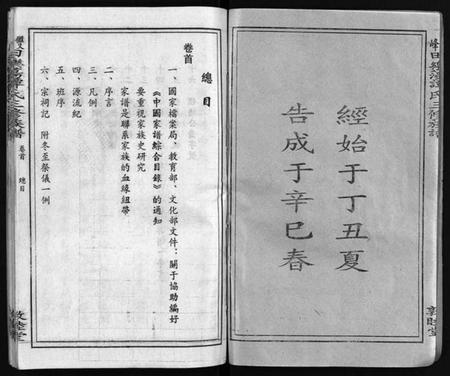 經始于丁丑夏
告成于辛巳春
敦睦堂
總目
卷首
一、國家檔案局、教育部、文化部文件：關于協助編好
《中國家譜綜合目錄》的通知
要重視家族史研究
家譜是聯系家族的血緣紐帶
二、序言
三、凡例
四、源流紀
五、班序
六、宗祠記 附冬至祭儀一例
卷首 總目
敦睦堂